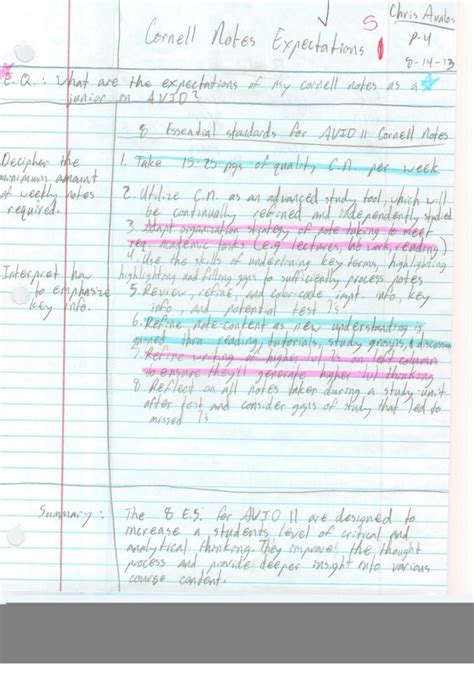 S
Chris Avalos
P-4
8-14-13
Cornell Notes Expectations
E.Q.: What are the expectations of my cornell notes as a
junior in AVID?
8 Essential standards for AVID 11 Cornell Notes
Decipher the
minimum amount
of weekly notes
required.
1. Take 15-25 pgs of quality C.N. per week
2. Utilize C.N. as an advanced study tool, which will
be continually refined and independently studied
3. Adapt organization strategy of note-taking to meet
req. academic tasks (e.g. lectures, lab work, reading)
Interpret how
to emphasize
key info.
4. Use the skills of underlining key terms, highlighting
highlighting and filling gaps to sufficiently process notes
5. Review, refine, and color-code impt. info, key
info, and potential test ?s
6. Refine note-content as new understanding is
gained thru reading, tutorials, study groups, & discussion
7. Refine writing of higher lvl ?s on left column
to ensure they'll generate higher lvl thinking
8. Reflect on all notes taken during a study unit
after test, and consider gaps of study that led to
missed ?s
Summary:
The 8 E.S. for AVID 11 are designed to
increase a students level of critical and
analytical thinking. They improve the thought
process and provide deeper insight into various
course content.